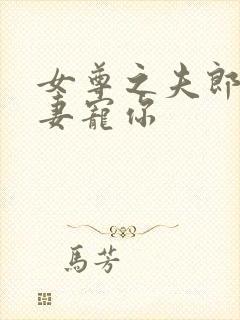 女尊之夫郎
妻寵你
馬芳